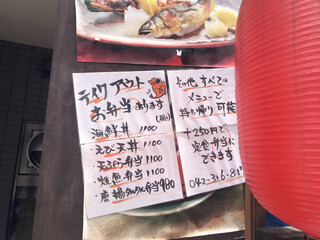 テイクアウト
お弁当あります
(税込)
海鮮丼 1100
・えび天丼 1100
・天ぷら弁当 1100
・焼魚弁当 1100
・唐揚タルタル弁当 980
その他すべての
メニューで
持ち帰り可能
+250円で
定食弁当に
できます
042-316-81